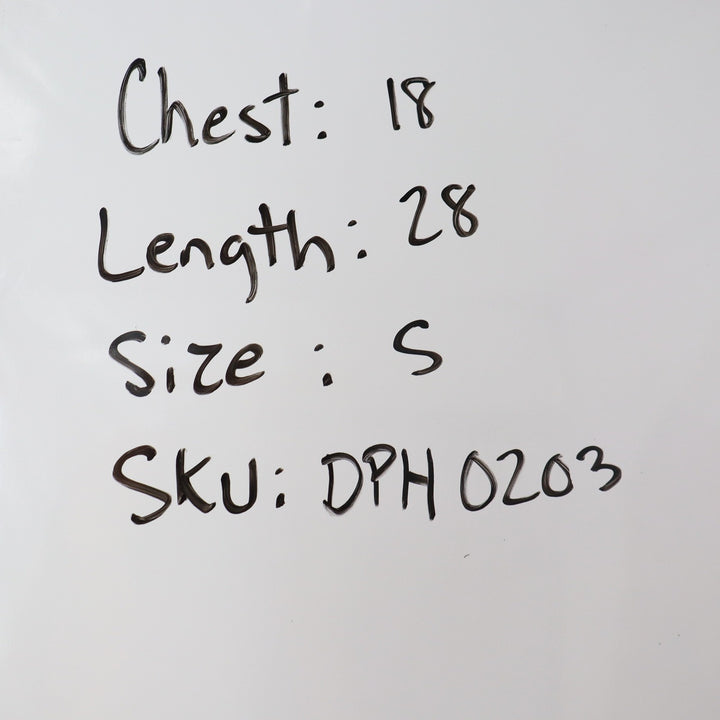 Chest: 18
Length: 28
Size: S
SKU: DPH0203